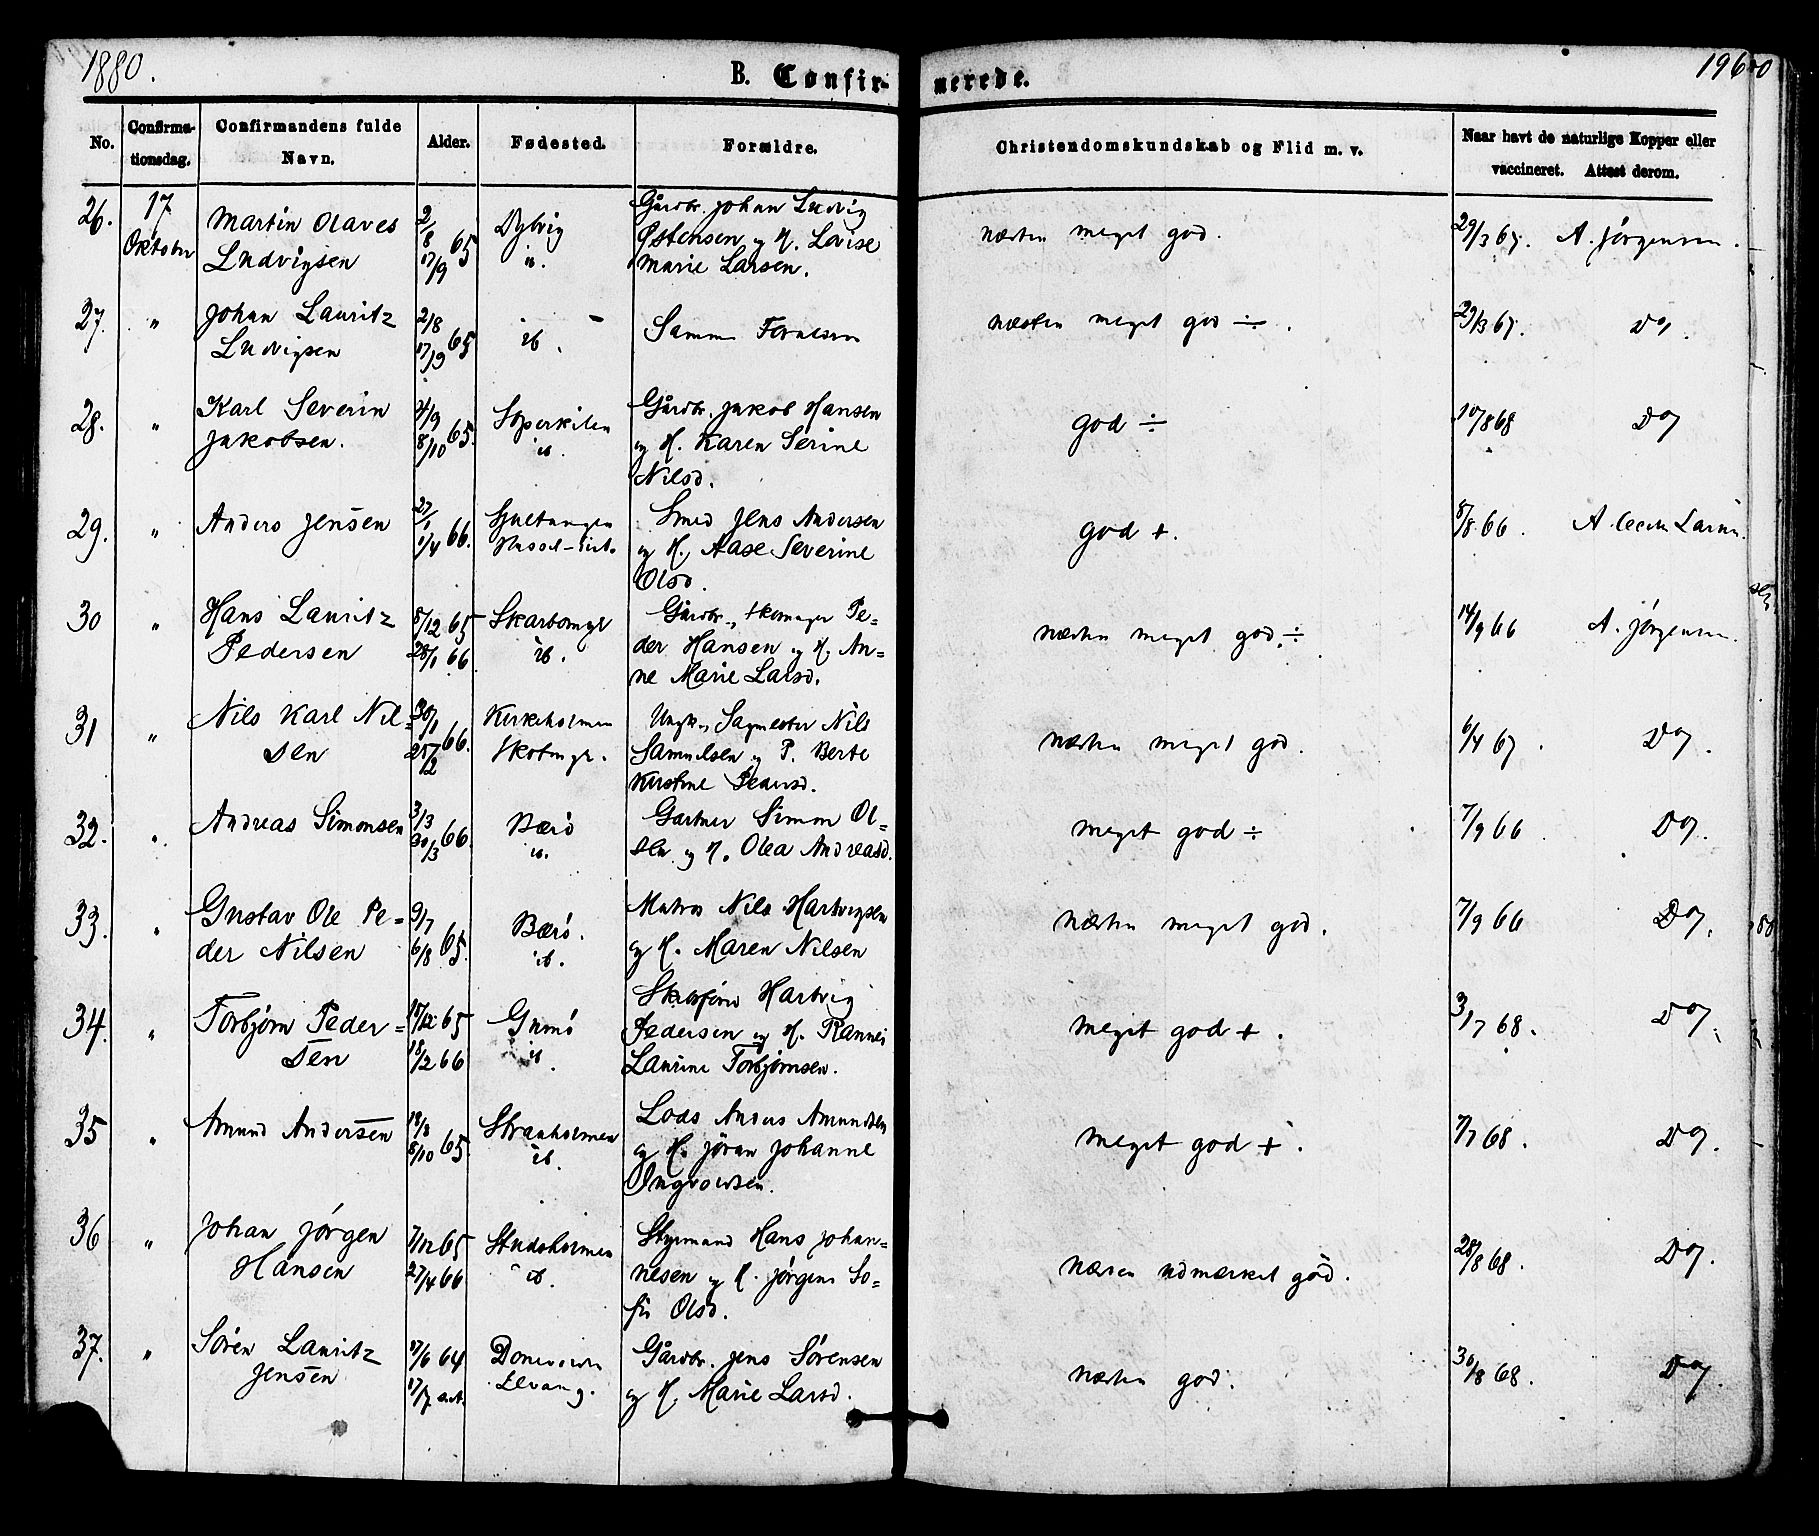 1880.
B. Confirmerede.
196
No.
Confirmationsdag.
Confirmandens fulde Navn.
Alder.
Fødested.
Forældre.
Christendomskundskab og Flid m. v.
Naar havt de naturlige Kopper eller vaccineret. Attest derom.
26. 17 Oktober
Martin Olaves
Ludvigsen
2/8 65
17/9
Dybvig
ib.
Gårdbr. Johan Ludvig
Østensen og H. Lovise
Marie Larsen.
næsten meget god.
29/3 67. A. Jørgensen.
27. "
Johan Lauritz
Ludvigsen
2/8 65
17/9
ib.
Samme Forælsen
næsten meget god ÷.
29/3 67. Do.
28. "
Karl Severin
Jakobsen.
4/9 65.
8/10
Støperkilen
ib.
Gårdbr. Jakob Hansen
og H. Karen Serine
Nilsd.
god ÷
10/8 68 Do
29. "
Anders Jensen
27/1 66.
1/4
Smed Jens Andersen
og H. Aase Severine
Olsd.
god +.
8/8 66. A. Larsen.
30 "
Hans Lauritz
Pedersen
8/12 65
28/1 66
Skarbomyr
ib.
Gårdbr., Skomager Pe=
der Hansen og H. An=
ne Marie Larsd.
næsten meget god ÷
14/9 66 A. Jørgensen.
31 "
Nils Karl Nil=
sen
30/1 66.
25/2
Kirkeholmen
Ungk., Sagmester Nils
Samuelsen og P. Berte
Kirstine Pedersd.
næsten meget god.
6/4 67. Do.
32. "
Andreas Simonsen
3/3 66.
30/3
Bærø
ib.
Gartner Simon Ol=
sen og H. Olea Andreasd.
meget god ÷
7/9 66. Do.
33. "
Gustav Ole Pe=
der Nilsen
9/7 65.
6/8
Bærø.
ib.
Matros Nils Hartvigsen
og H. Maren Nilsen
næsten meget god.
7/9 66 Do.
34. "
Torbjørn Peder=
sen
18/2 66
Gumø
ib.
Hartvig
Pedersen og H. Rannei
Laurine Torbjørnsen.
meget god +.
3/7 68. Do.
35 "
Amund Andersen
8/10 65.
Stranholmen
ib.
Lods Anders Amundsen
og H. Jøran Johanne
Ingvoldsen.
meget god +.
7/7 68. Do.
36 "
Johan Jørgen
Hansen
7/12 65
27/4 66
Studsholmen
ib.
Styrmand Hans Johan=
nesen og H. Jørgine So=
fie Olsd.
næsten udmærket god.
28/8 68. Do.
37. "
Søren Lauritz
Jensen
17/6 64
17/7
Levang.
Gårdbr. Jens Sørensen
og H. Marie Larsd.
næsten god.
30/8 68. Do.